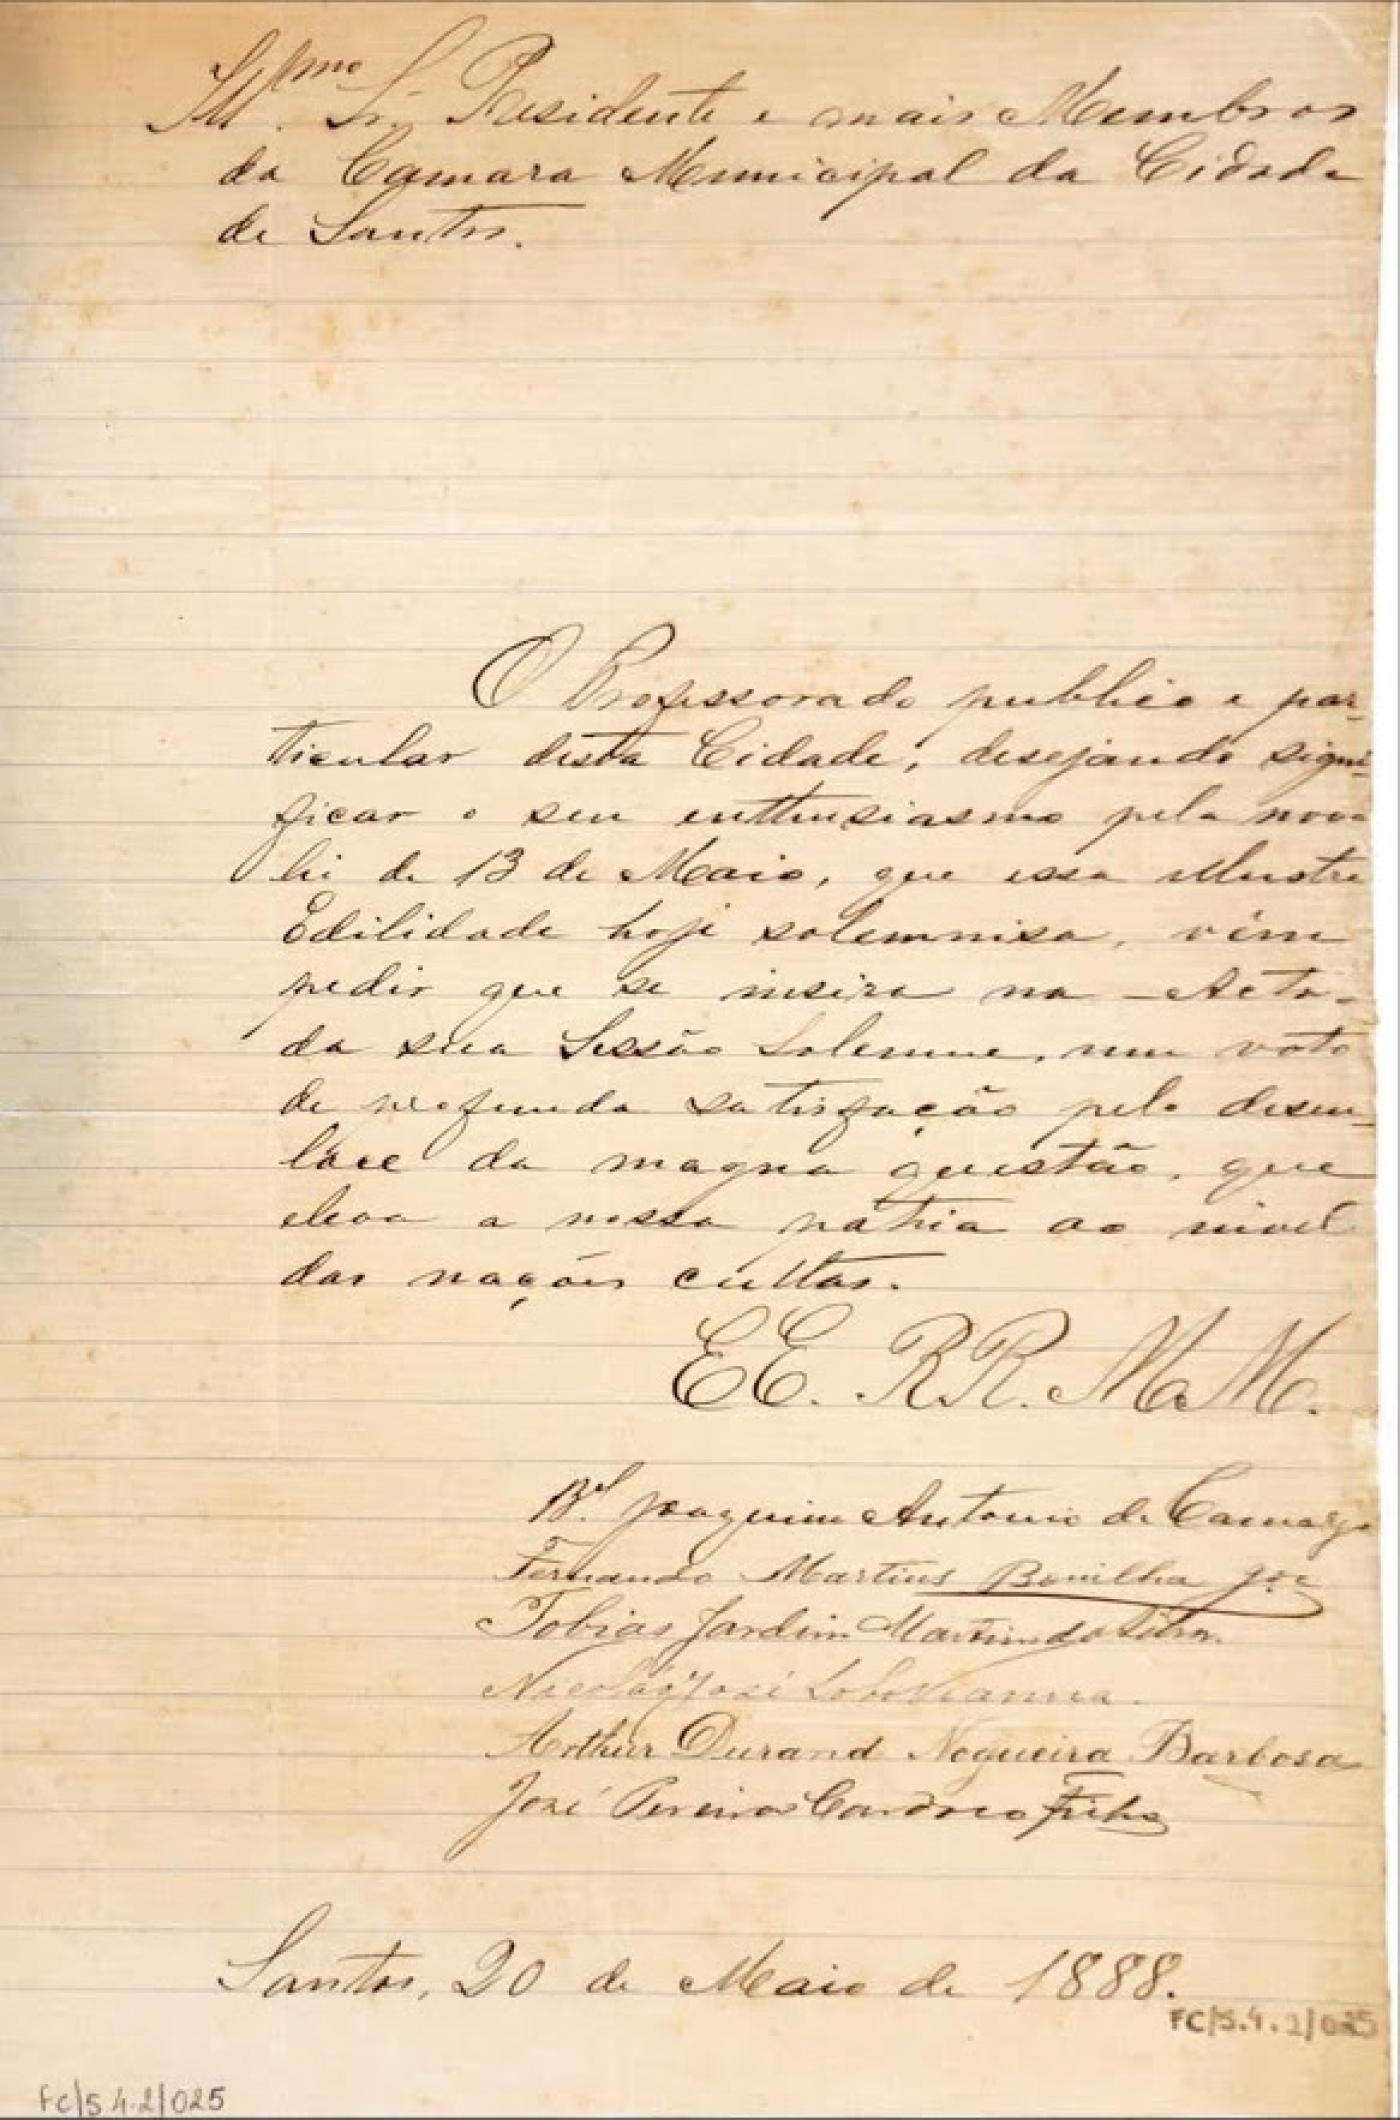 Illmo. Sr. Presidente e mais Membros
da Camara Municipal da Cidade
de Santos.
O Professorado publico e par-
ticular desta Cidade, desejando signi-
ficar o seu enthusiasmo pela nova
lei de 13 de Maio, que essa illustre
Edilidade hoje solemnisa, vêm
pedir que se insira na - Acta -
da sua Sessão Solemne, um voto
de profunda satisfação pelo desen-
lace da magna questão, que
eleva a nossa patria ao nivel
das nações cultas.
EE. RR. MM.
Bel. Joaquim Antonio de Camargo
Fernando Martins Bonilha Jor
Tobias Jardim Martins da Silva
Nicoláo José Lobo Vianna.
Arthur Durand Nogueira Barbosa
José Pereira Cardoso Filho
Santos, 20 de Maio de 1888.
FC/S.4.2/025
FC/S 4.2/025